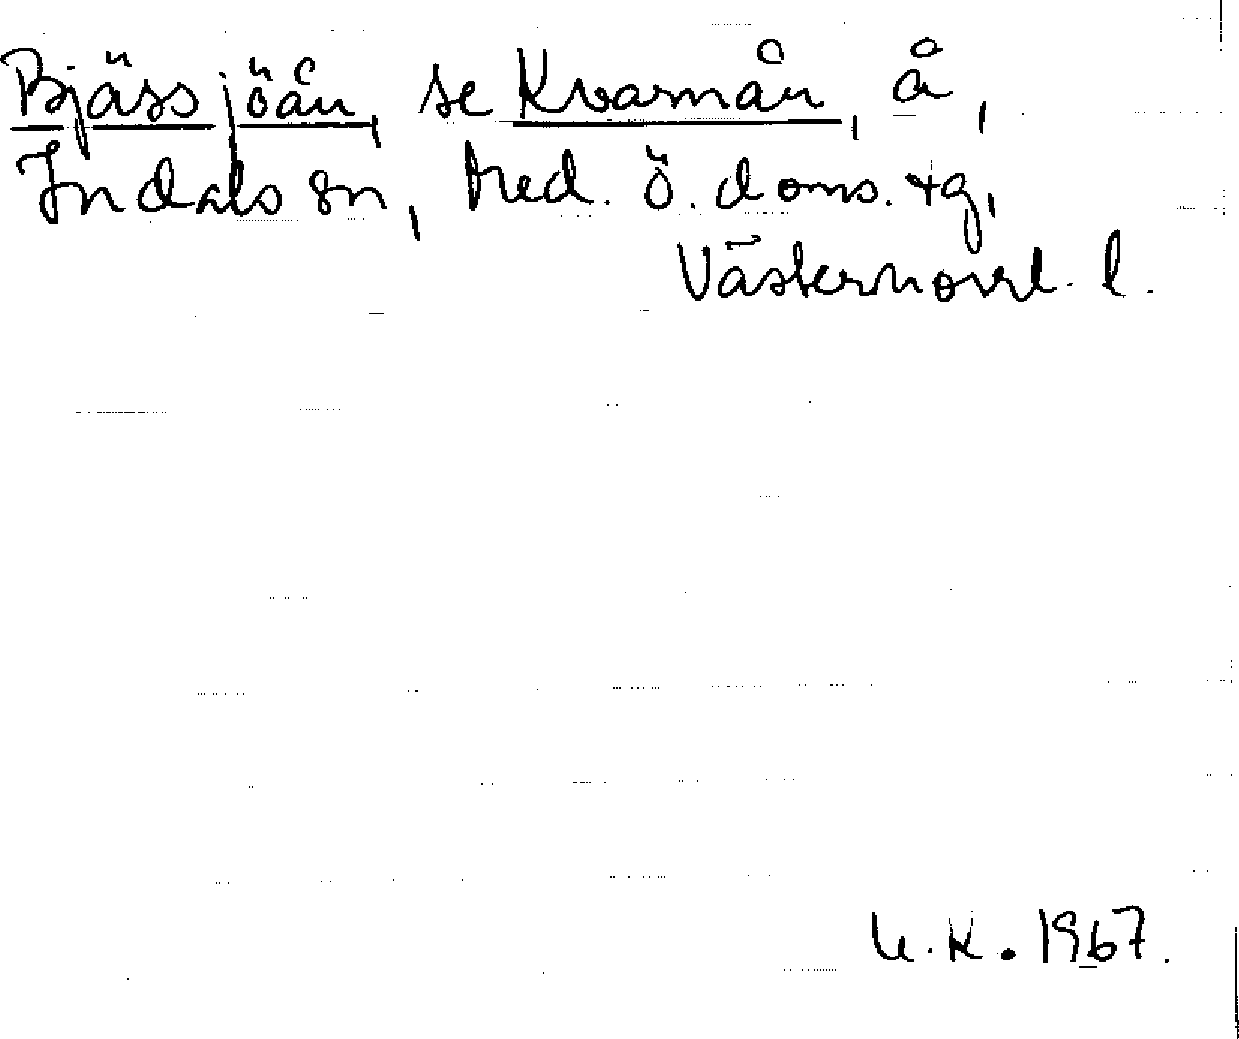 Bjässjöån, se Kvarnån, å,
Indals sn, Med. ö. doms. tg,
Västernorrl. l.
U.K. 1967.